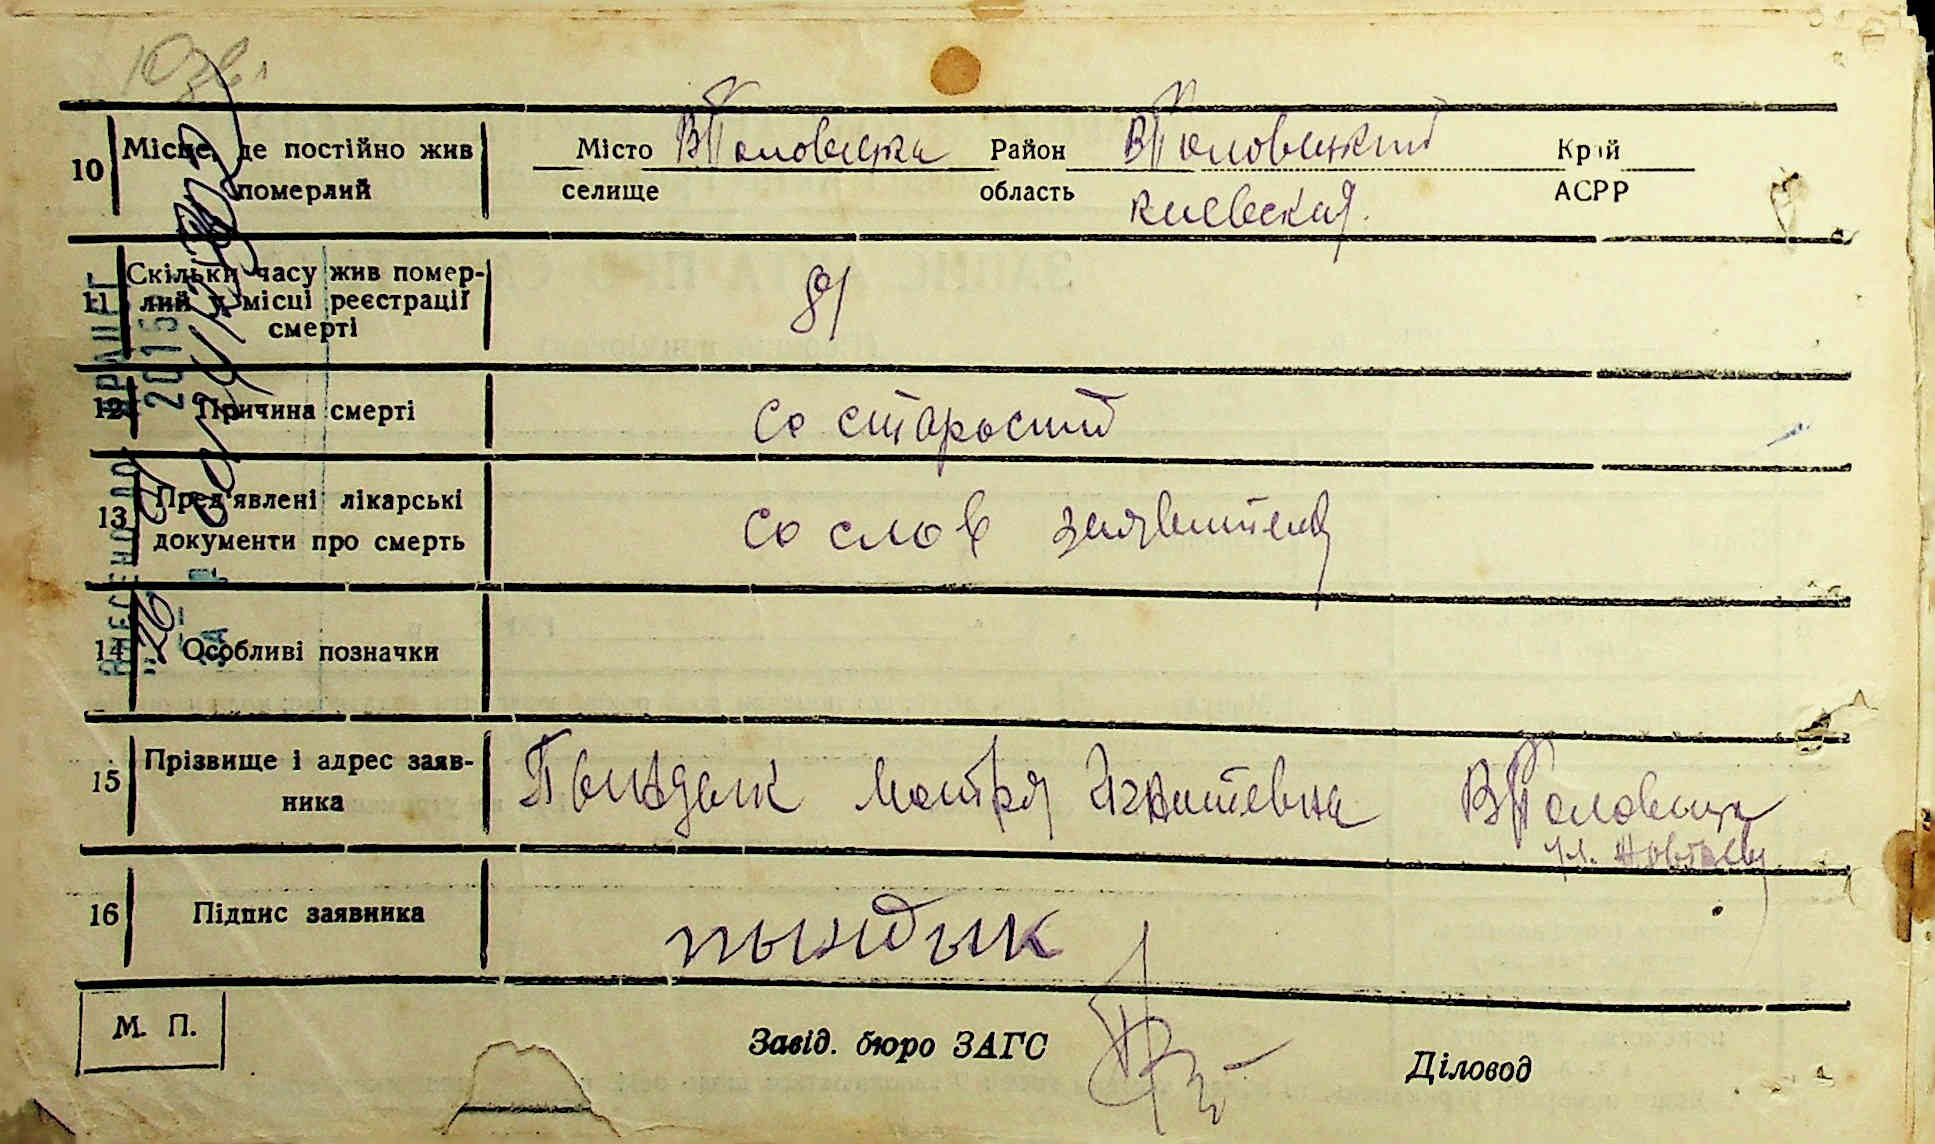 10 Місце, де постійно жив померлий
Місто В Половецка Район В Половецкий Край
селище область киевская. АСРР
11 Скільки часу жив помер-
лий у місці реєстрації
смерті
81
12 Причина смерті со старости
13 Пред'явлені лікарські
документи про смерть
со слов заявителя
14 Особливі позначки
15 Прізвище і адрес заяв-
ника
Пындык Мотря Игнатевна В Половецка
ул.
16 Підпис заявника пындык
М. П.
Завід. бюро ЗАГС Діловод
ВНЕСЕНО ДО ДРАЦСГ
2015